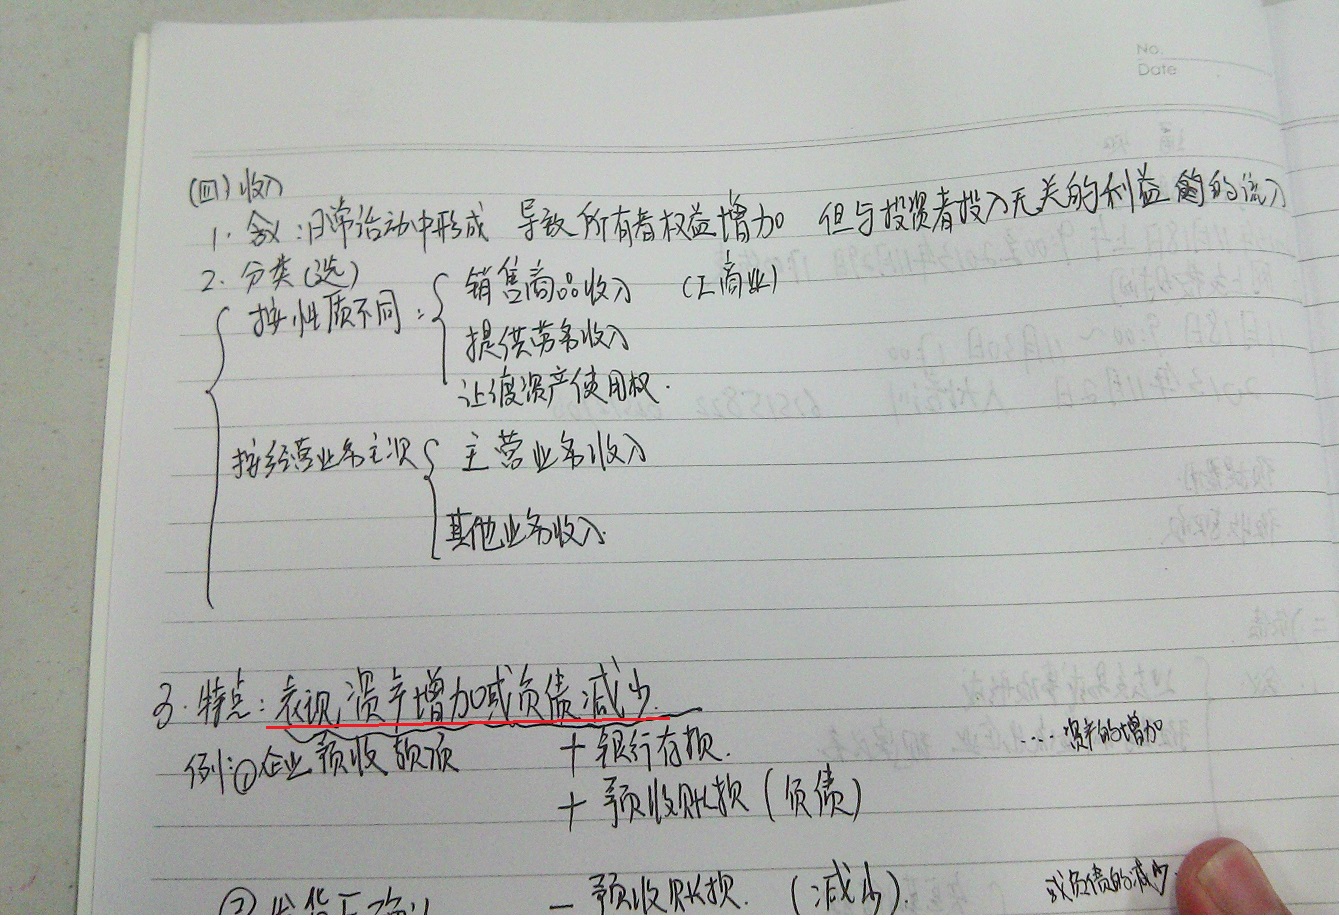 No.
Date
(四) 收入
1. 含义：日常活动中形成 导致所有者权益增加 但与投资者投入无关的利益的流入
2. 分类(选)
按性质不同： 销售商品收入 (工商业)
提供劳务收入
让渡资产使用权.
按经营业务主次 主营业务收入
其他业务收入.
3. 特点：表现 资产增加或负债减少.
例：① 企业预收款项 + 银行存款. ...... 资产的增加
+ 预收账款 (负债)
② 发货后确认 − 预收账款. (减少). 或负债的减少.